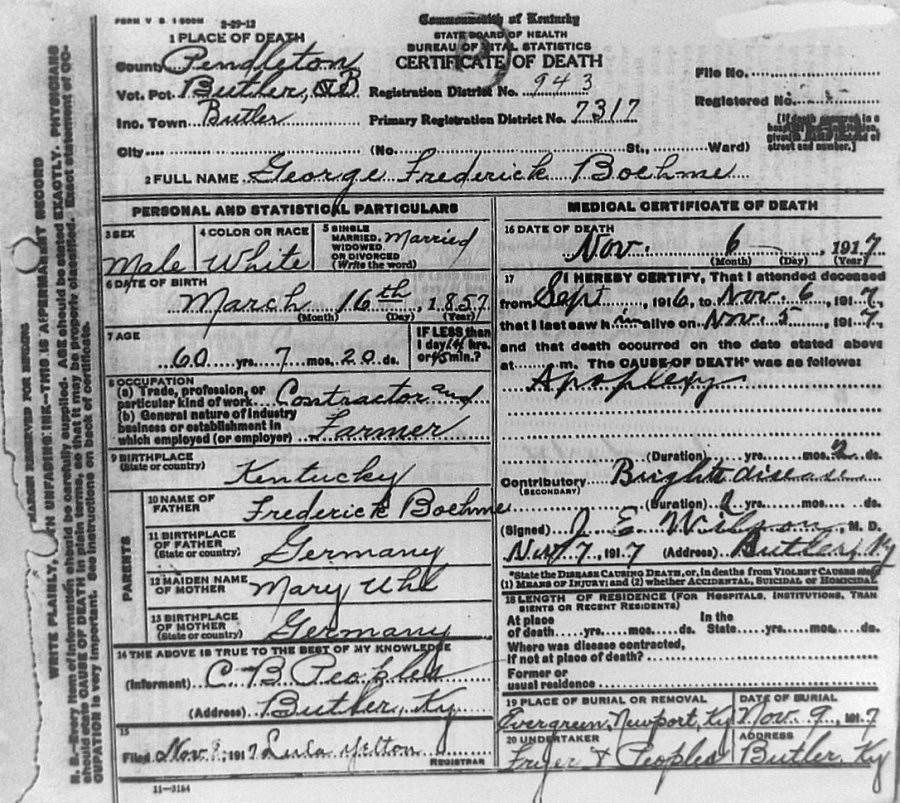 FORM V. S. 1 500M 2-29-12
Commonwealth of Kentucky
STATE BOARD OF HEALTH
BUREAU OF VITAL STATISTICS
CERTIFICATE OF DEATH
1 PLACE OF DEATH
County Pendleton
Vot. Pct Butler,
Inc. Town Butler
City (No. St., Ward)
Registration District No. 943
Primary Registration District No. 7317
File No.
Registered No.
[If death occurred in a
give its
of
street and number.]
2 FULL NAME George Frederick Boehme
PERSONAL AND STATISTICAL PARTICULARS
3 SEX
Male
4 COLOR OR RACE
White
5 SINGLE
MARRIED,
WIDOWED
OR DIVORCED
(Write the word)
Married
6 DATE OF BIRTH
March 16th, 1857
(Month) (Day) (Year)
7 AGE
60 yrs. 7 mos. 20 ds.
IF LESS than
1 day hrs.
or min.?
8 OCCUPATION
(a) Trade, profession, or
particular kind of work Contractor and
(b) General nature of industry
business or establishment in
which employed (or employer) Farmer
9 BIRTHPLACE
(State or country)
Kentucky
PARENTS
10 NAME OF
FATHER
Frederick Boehme
11 BIRTHPLACE
OF FATHER
(State or country)
Germany
12 MAIDEN NAME
OF MOTHER
Mary Uhl
13 BIRTHPLACE
OF MOTHER
(State or country)
Germany
14 THE ABOVE IS TRUE TO THE BEST OF MY KNOWLEDGE
(Informent) C B Peoples
(Address) Butler, Ky
15
Filed Nov 8, 1917 Lula Yelton
REGISTRAR
11-3184
MEDICAL CERTIFICATE OF DEATH
16 DATE OF DEATH
Nov. 6, 1917
(Month) (Day) (Year)
17 I HEREBY CERTIFY, That I attended deceased
from Sept, 1916, to Nov. 6, 1917,
that I last saw him alive on Nov. 5, 1917,
and that death occurred on the date stated above
at m. The CAUSE OF DEATH* was as follows:
Apoplexy
(Duration) yrs. mos. 2 ds.
Contributory Brights disease
(SECONDARY)
(Duration) 1 yrs. mos. ds.
(Signed) J. E. Wilson, M. D.
Nov 7, 1917 (Address) Butler, Ky
*State the DISEASE CAUSING DEATH, or, in deaths from VIOLENT CAUSES state
(1) MEANS OF INJURY; and (2) whether ACCIDENTAL, SUICIDAL or HOMICIDAL
18 LENGTH OF RESIDENCE (FOR HOSPITALS, INSTITUTIONS, TRAN
SIENTS OR RECENT RESIDENTS)
At place In the
of death yrs. mos. ds. State yrs. mos. ds.
Where was disease contracted,
if not at place of death?
Former or
usual residence
19 PLACE OF BURIAL OR REMOVAL
Evergreen, Newport, Ky
DATE OF BURIAL
Nov. 9, 1917
20 UNDERTAKER
Fryer & Peoples
ADDRESS
Butler, Ky
MARGIN RESERVED FOR BINDING
WRITE PLAINLY, WITH UNFADING INK—THIS IS A PERMANENT RECORD
N. B.—Every item of information should be carefully supplied. AGE should be stated EXACTLY. PHYSICIANS
should state CAUSE OF DEATH in plain terms, so that it may be properly classified. Exact statement of OC-
CUPATION is very important. See instructions on back of certificate.